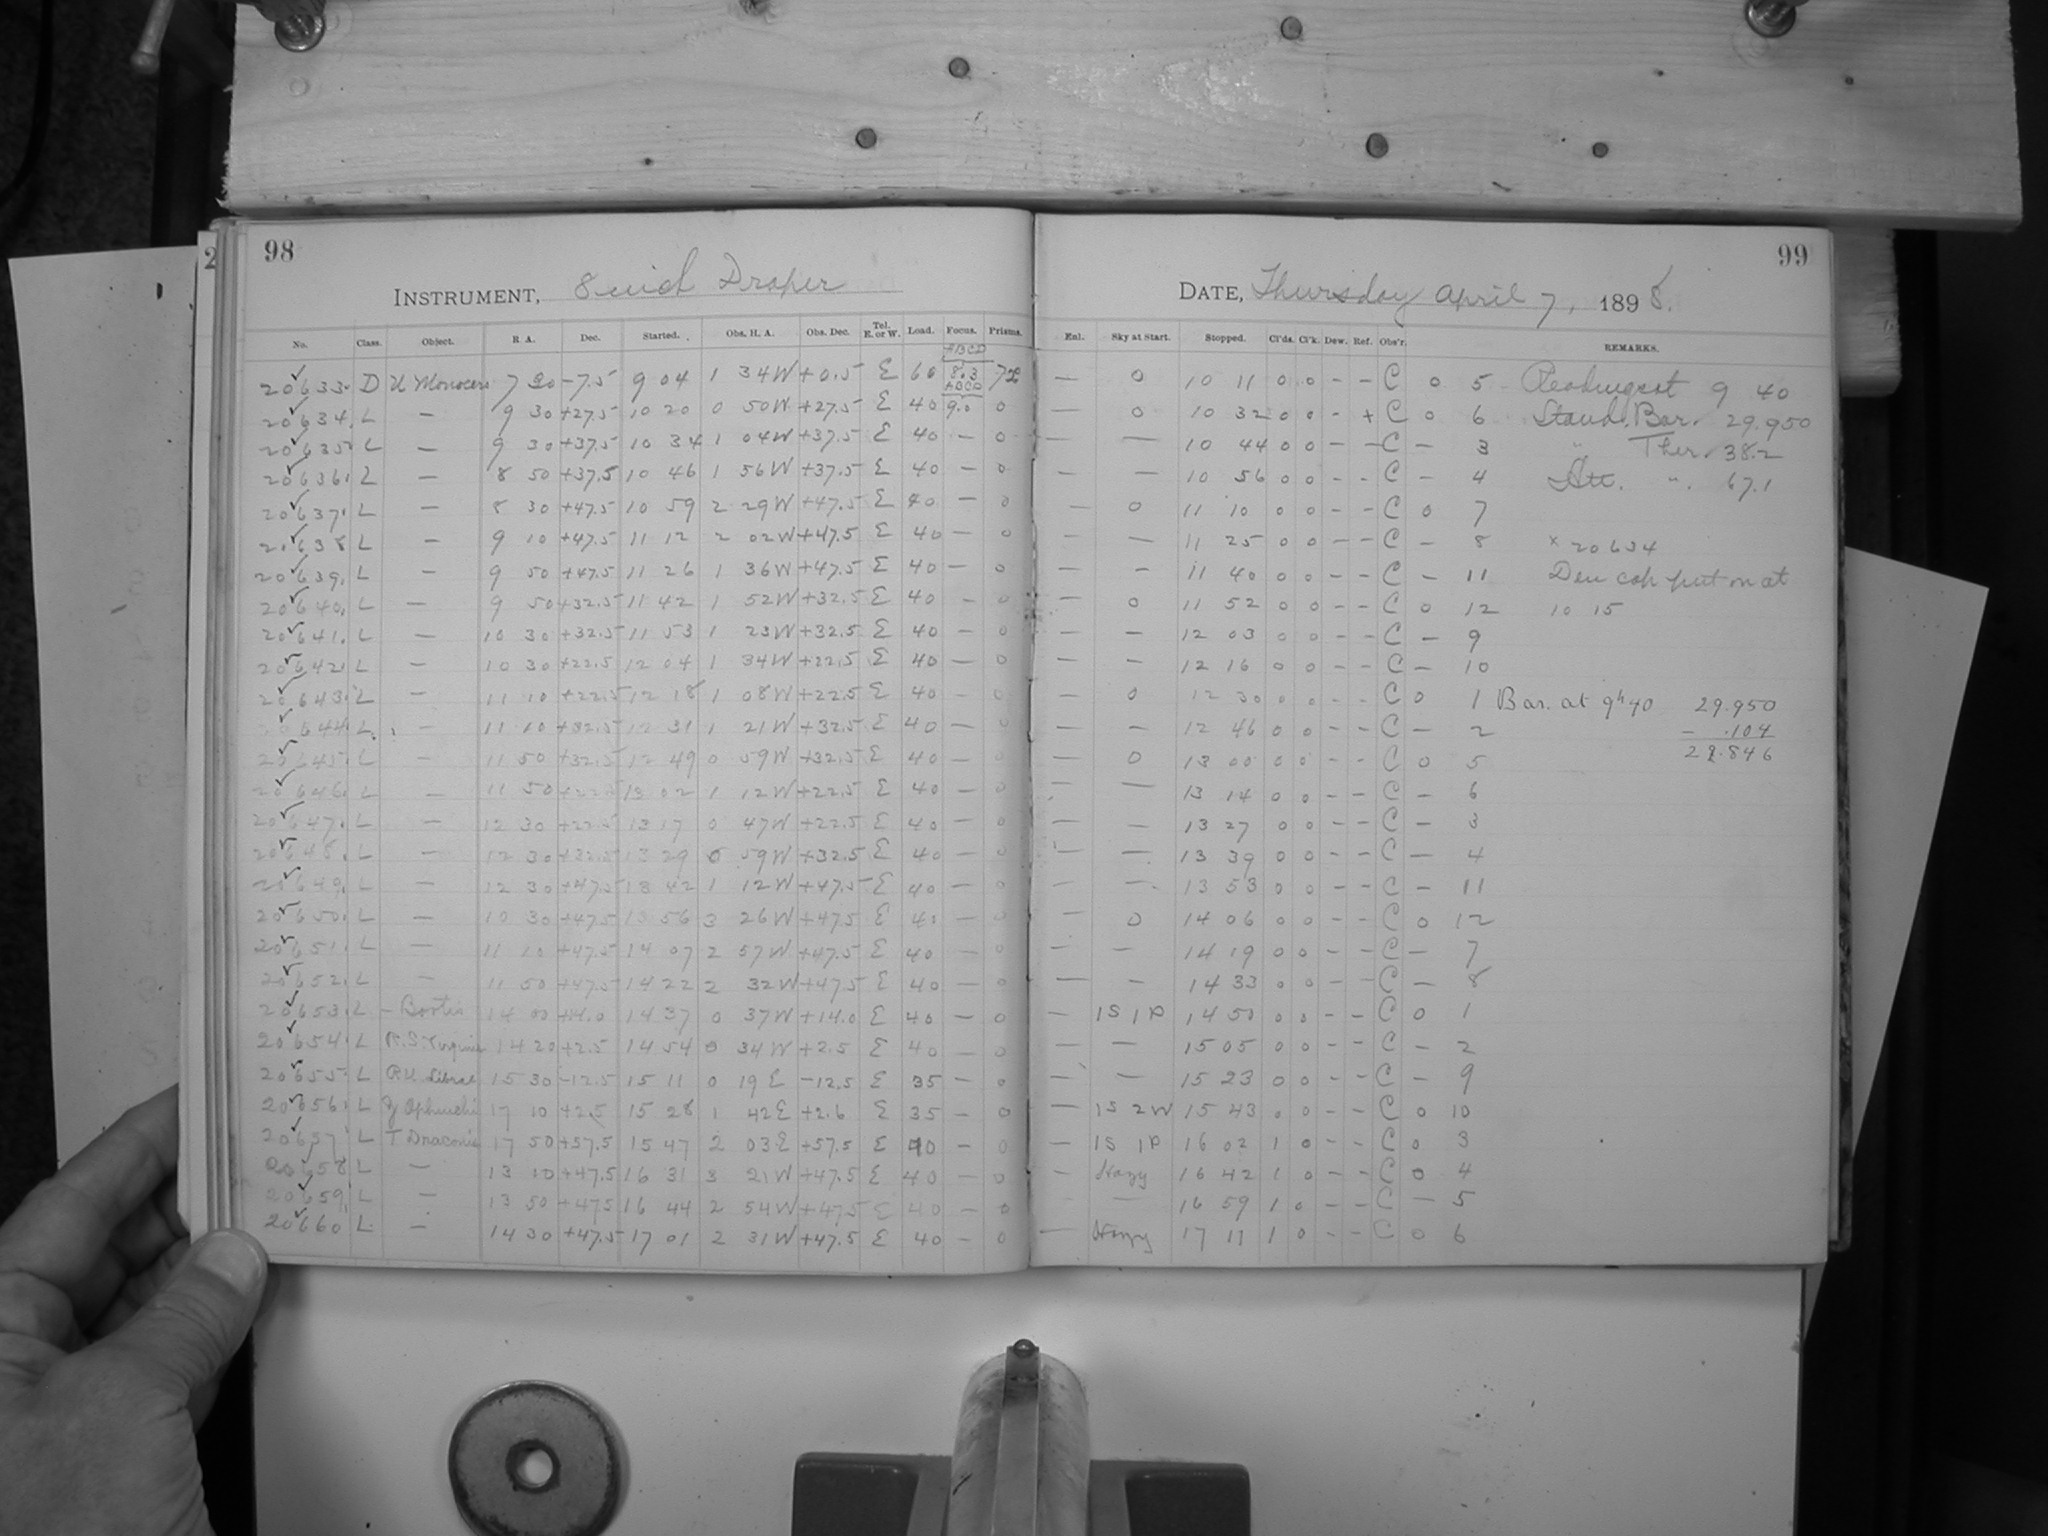 98
INSTRUMENT, 8 inch Draper
No. Class. Object. R. A. Dec. Started. Obs. H. A. Obs. Dec. Tel. E. or W. Load. Focus. Prisms.
ABCD
20633. D U Monoceros 7 30 -7.5 9 04 1 34W +0.5 E 60 8.3
ABCD
20634. L — 9 30 +27.5 10 20 0 50W +27.5 E 40 9.0 0
20635. L — 9 30 +37.5 10 34 1 04W +37.5 E 40 — 0
20636. L — 8 50 +37.5 10 46 1 56W +37.5 E 40 — 0
20637. L — 8 30 +47.5 10 59 2 29W +47.5 E 40 — 0
20638 L — 9 10 +47.5 11 12 2 02W +47.5 E 40 — 0
20639. L — 9 50 +47.5 11 26 1 36W +47.5 E 40 — 0
20640. L — 9 50 +32.5 11 42 1 52W +32.5 E 40 — 0
20641. L — 10 30 +32.5 11 53 1 23W +32.5 E 40 — 0
20642. L — 10 30 +22.5 12 04 1 34W +22.5 E 40 — 0
20643. L — 11 10 +22.5 12 18 1 08W +22.5 E 40 — 0
20644. L. — 11 10 +32.5 12 31 1 21W +32.5 E 40 — 0
20645. L — 11 50 +32.5 12 49 0 59W +32.5 E 40 — 0
20646. L — 11 50 +22.5 13 02 1 12W +22.5 E 40 — 0
20647. L — 12 30 +22.5 13 17 0 47W +22.5 E 40 — 0
20648. L — 12 30 +32.5 13 29 0 59W +32.5 E 40 — 0
20649. L — 12 30 +47.5 13 42 1 12W +47.5 E 40 — 0
20650. L — 10 30 +47.5 13 56 3 26W +47.5 E 40 — 0
20651. L — 11 10 +47.5 14 07 2 57W +47.5 E 40 — 0
20652. L — 11 50 +47.5 14 22 2 32W +47.5 E 40 — 0
20653. L — Bootis 14 00 +14.0 14 37 0 37W +14.0 E 40 — 0
20654. L R.S. Virginis 14 20 +2.5 14 54 0 34W +2.5 E 40 — 0
20655. L R.U. Librae 15 30 -12.5 15 11 0 19E -12.5 E 35 — 0
20656. L Ophiuchi 17 10 +2.5 15 28 1 42E +2.6 E 35 — 0
20657 L T Draconis 17 50 +57.5 15 47 2 03E +57.5 E 40 — 0
20658 L — 13 10 +47.5 16 31 3 21W +47.5 E 40 — 0
20659. L — 13 50 +47.5 16 44 2 54W +47.5 E 40 — 0
20660 L. — 14 30 +47.5 17 01 2 31W +47.5 E 40 — 0
99
DATE, Thursday April 7, 1898.
Enl. Sky at Start. Stopped. Cl'ds. Cl'k. Dew. Ref. Obs'r. REMARKS.
— 0 10 11 0 0 - - C 0 5 Readings at 9 40
— 0 10 32 0 0 - + C 0 6 Stand. Bar. 29.950
— — 10 44 0 0 - - C — 3 " Ther. 38.2
— — 10 56 0 0 - - C — 4 Att. ". 67.1
— 0 11 10 0 0 - - C 0 7
— — 11 25 0 0 - - C — 8 x 20634
— — 11 40 0 0 - - C — 11 Dew cap put on at
— 0 11 52 0 0 - - C 0 12 10 15
— — 12 03 0 0 - - C — 9
— — 12 16 0 0 - - C — 10
— 0 12 30 0 0 - - C 0 1 Bar. at 9h 40 29.950
— — 12 46 0 0 - - C — 2 - .104
— 0 13 00 0 0 - - C 0 5 29.846
— — 13 14 0 0 - - C — 6
— — 13 27 0 0 - - C — 3
— — 13 39 0 0 - - C — 4
— — 13 53 0 0 - - C — 11
— 0 14 06 0 0 - - C 0 12
— — 14 19 0 0 - - C — 7
— — 14 33 0 0 - - C — 8
— 1S 1P 14 50 0 0 - - C 0 1
— — 15 05 0 0 - - C — 2
— — 15 23 0 0 - - C — 9
— 1S 2W 15 43 0 0 - - C 0 10
— 1S 1P 16 02 1 0 - - C 0 3
— Hazy 16 42 1 0 - - C 0 4
— — 16 59 1 0 - - C — 5
— Hazy 17 11 1 0 - - C 0 6